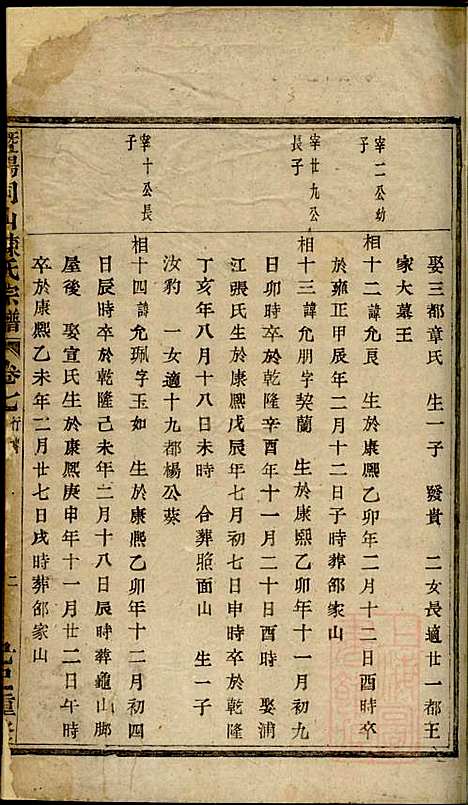 娶三都章氏　生一子　發貴　二女長適廿一都王
家大墓王
宰二公幼
子
相十二諱允良　生於康熙乙卯年二月十二日酉時卒
於雍正甲辰年二月十二日子時葬郃家山
宰廿九公
長子
相十三諱允朋字契蘭　生於康熙乙卯年十一月初九
日卯時卒於乾隆辛酉年十一月二十日酉時　娶浦
江張氏生於康熙戊辰年七月初七日申時卒於乾隆
丁亥年八月十八日未時　合葬照面山　生一子
汝豹　一女適十九都楊公葵
宰十公長
子
相十四諱允珮字玉如　生於康熙乙卯年十二月初四
日辰時卒於乾隆己未年二月十八日辰時葬龜山脚
屋後　娶宣氏生於康熙庚申年十一月廿二日午時
卒於康熙乙未年二月廿七日戌時葬郃家山
暨陽同山陳氏宗譜　卷七行傳　二